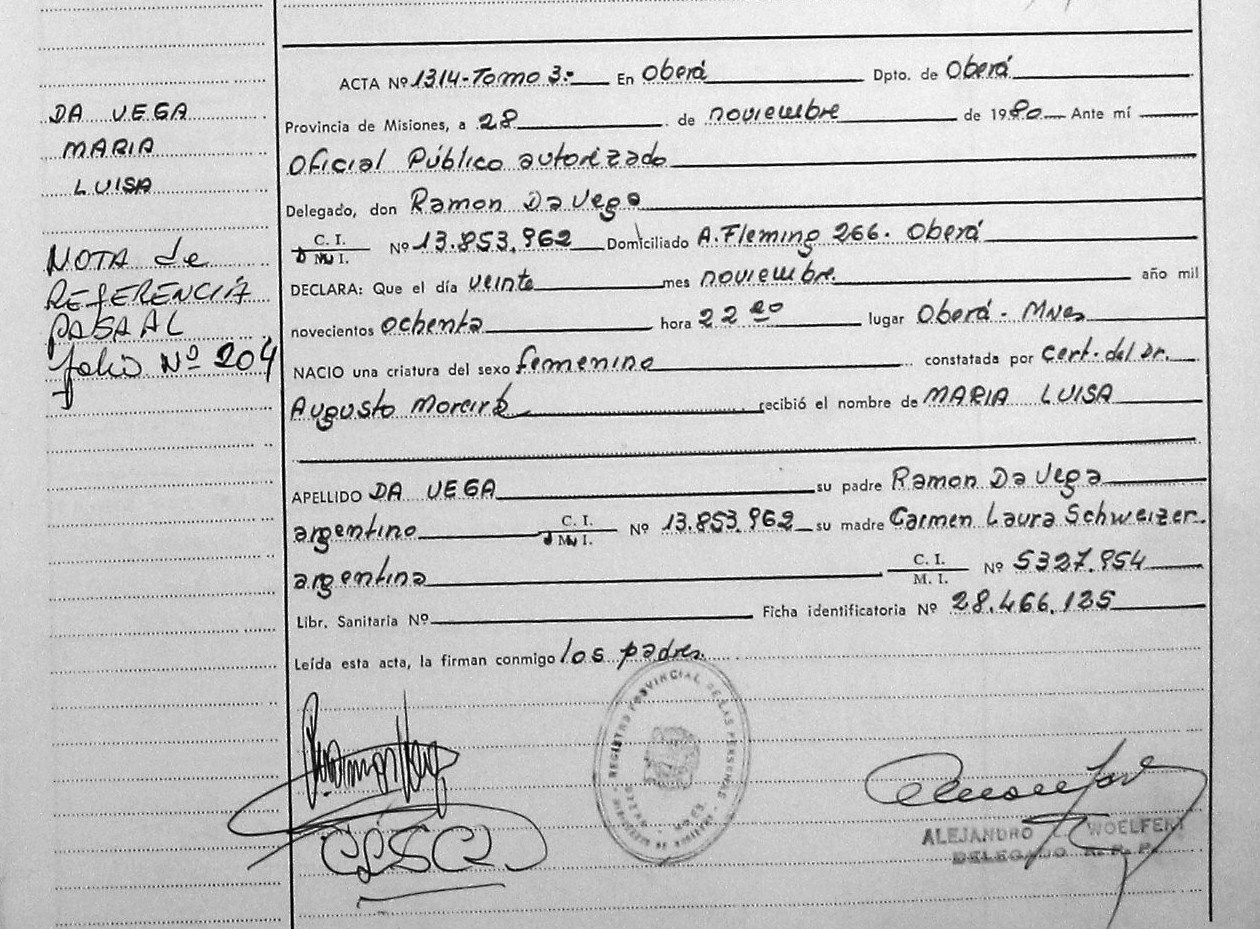 DA VEGA
MARIA
LUISA
NOTA de
REFERENCIA
PASA AL
folio Nº 204
ACTA Nº 1314-Tomo 3:- En Oberá Dpto. de Oberá
Provincia de Misiones, a 28 de noviembre de 1980 Ante mí
Oficial Público autorizado
Delegado, don Ramon Da Vega
C. I. D M I. Nº 13.853.962 Domiciliado A. Fleming 266. Oberá
DECLARA: Que el día veinte mes noviembre. año mil
novecientos ochenta hora 22 20 lugar Oberá - Mnes
NACIO una criatura del sexo femenino constatada por cert. del Dr.
Augusto recibió el nombre de MARIA LUISA
APELLIDO DA VEGA su padre Ramon Da Vega
argentino C. I. D M I. Nº 13.853.962 su madre Carmen Laura Schweizer.
argentina C. I. M. I. Nº 5327.954
Libr. Sanitaria Nº Ficha identificatoria Nº 28.466.135
Leída esta acta, la firman conmigo los padres.
REGISTRO PROVINCIAL DE LAS PERSONAS
ALEJANDRO WOELFERT
DELEGADO R. P. P.